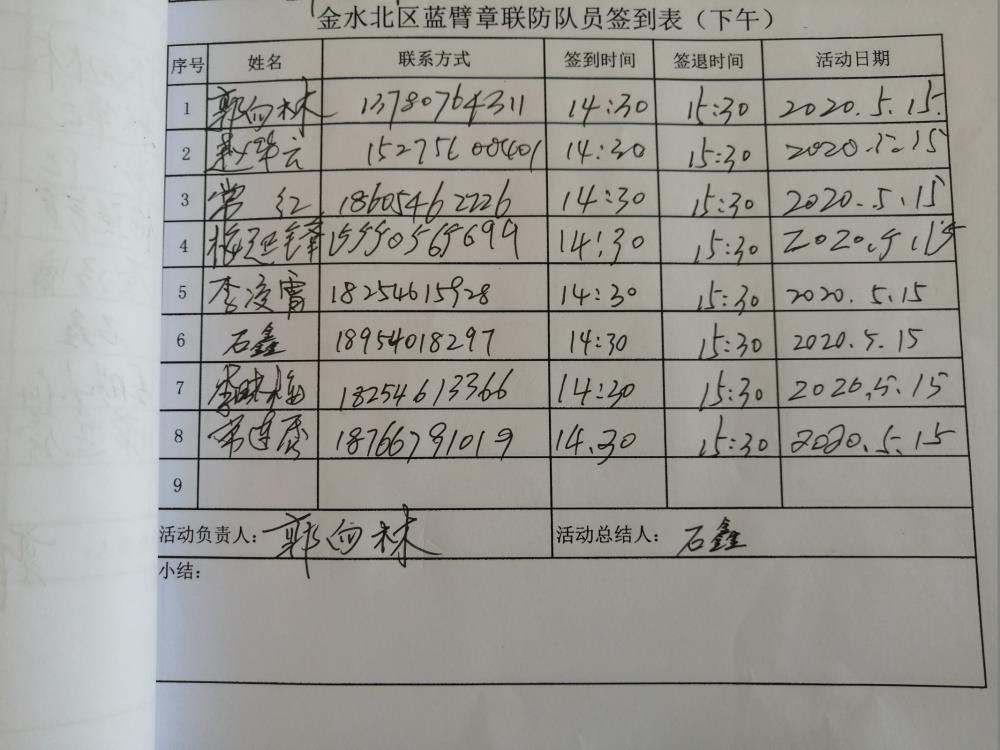 金水北区蓝臂章联防队员签到表（下午）
序号 姓名 联系方式 签到时间 签退时间 活动日期
1 郭向林 13780764311 14:30 15:30 2020.5.15.
2 赵华云 15275600401 14:30 15:30 2020.5.15
3 常红 18605462226 14:30 15:30 2020.5.15
4 梅廷锋 15550565699 14:30 15:30 2020.5.15
5 李凌霄 18254615928 14:30 15:30 2020.5.15
6 石鑫 18954018297 14:30 15:30 2020.5.15
7 李映梅 18254613366 14:30 15:30 2020.5.15
8 常连 18766791019 14.30 15:30 2020.5.15
9
活动负责人：郭向林 活动总结人：石鑫
小结：